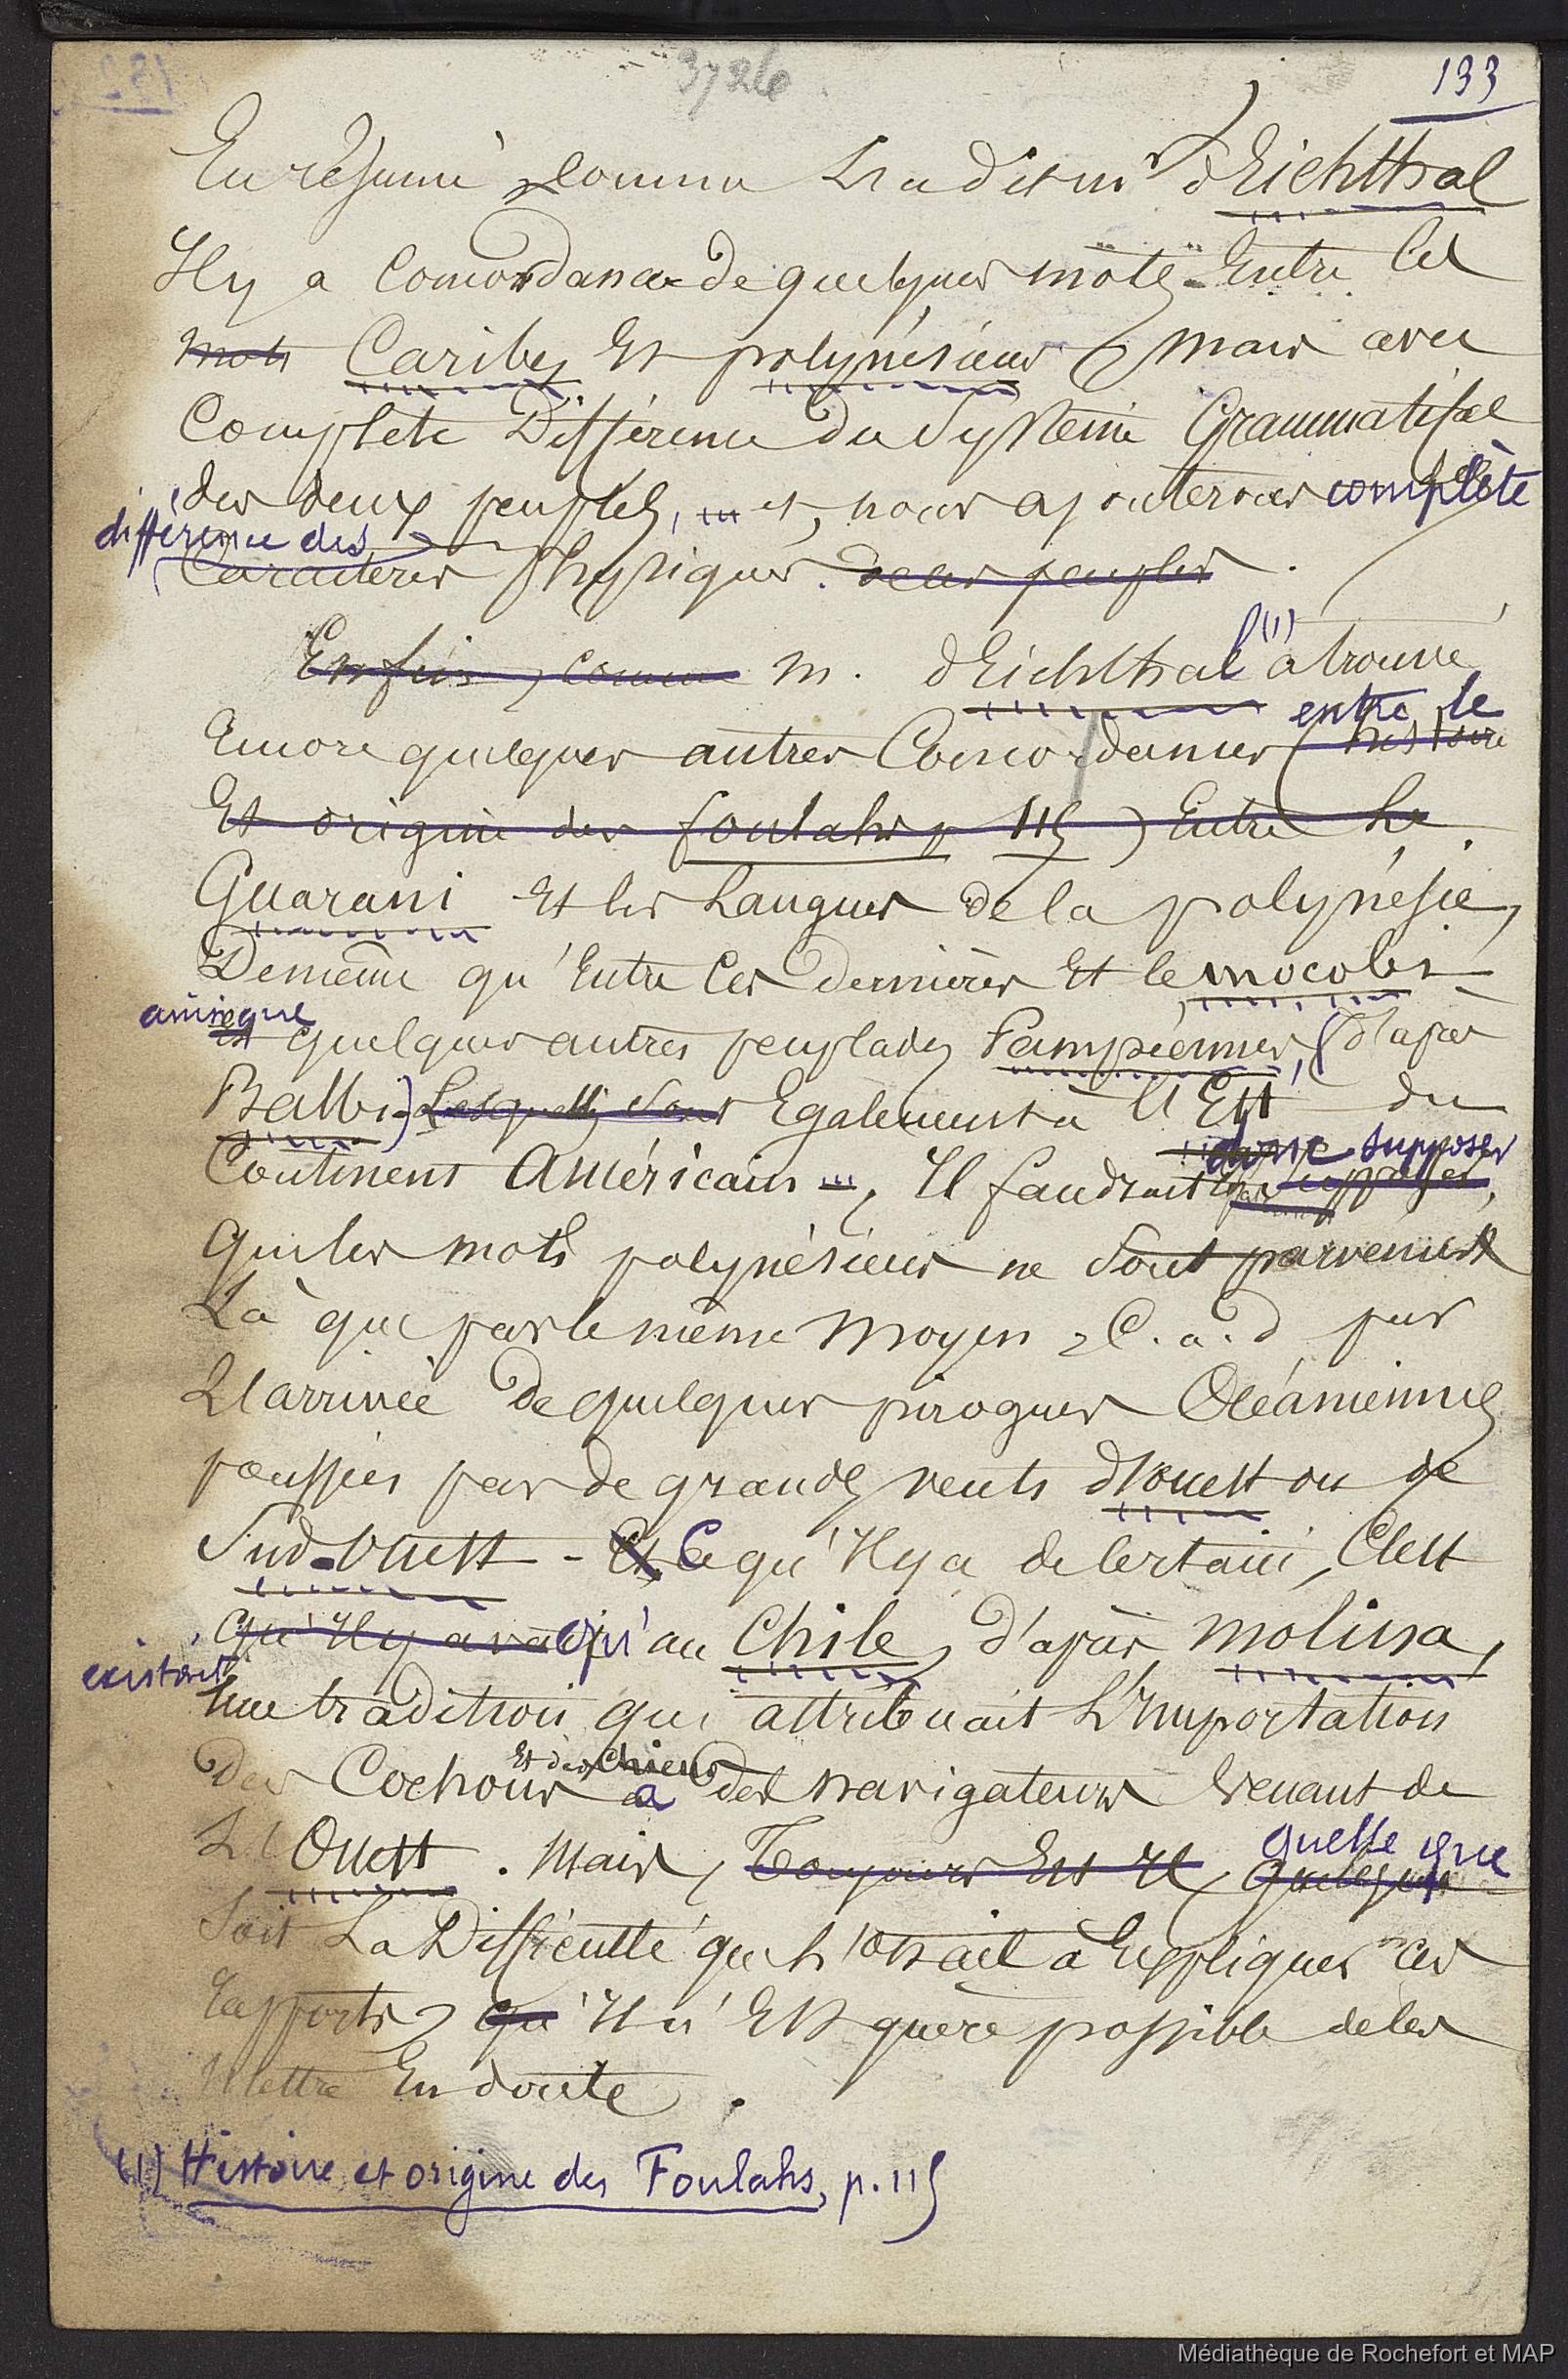 3726
133
En résumé, comme l'a dit mr d'Eichthal
Il y a concordance de quelques mots entre les
mots Caribes et polynésiens, mais avec
complète différence du système grammatical
des deux peuples, et, nous ajouterons complète
différence des
caractères physiques. de ces peuples.
Enfin, comme m. d'Eichthal (1) a trouvé
entre le
encore quelques autres concordances (histoire
et origine des foulahs, p 115) entre le
Guarani et les langues de la polynésie,
De même qu'entre ces dernières et le mocobi
ainsi que
et quelques autres peuplades Pampéennes, (d'après
Balbi) lesquelles sont également à l'Est du
donc supposer
continent Américain, Il faudrait supposer,
que les mots polynésiens ne sont parvenus
là que par le même moyen, c.a.d par
l'arrivée de quelques pirogues Océaniennes
poussées par de grands vents d'ouest ou de
Sud-Ouest - Et Ce qu'Il y a de certain, c'est
qu'Il y avait qu'au Chile, d'après molina,
existait
une tradition qui attribuait l'Importation
et des chiens
des Cochons à des navigateurs venant de
L'Ouest. Mais, Toujours est Il, quelle que
quelque
soit la Difficulté que l'on ait à expliquer ces
rapports, qu'Il n'Est guère possible de les
mettre en doute.
(1) Histoire et origine des Foulahs, p. 115
Médiathèque de Rochefort et MAP